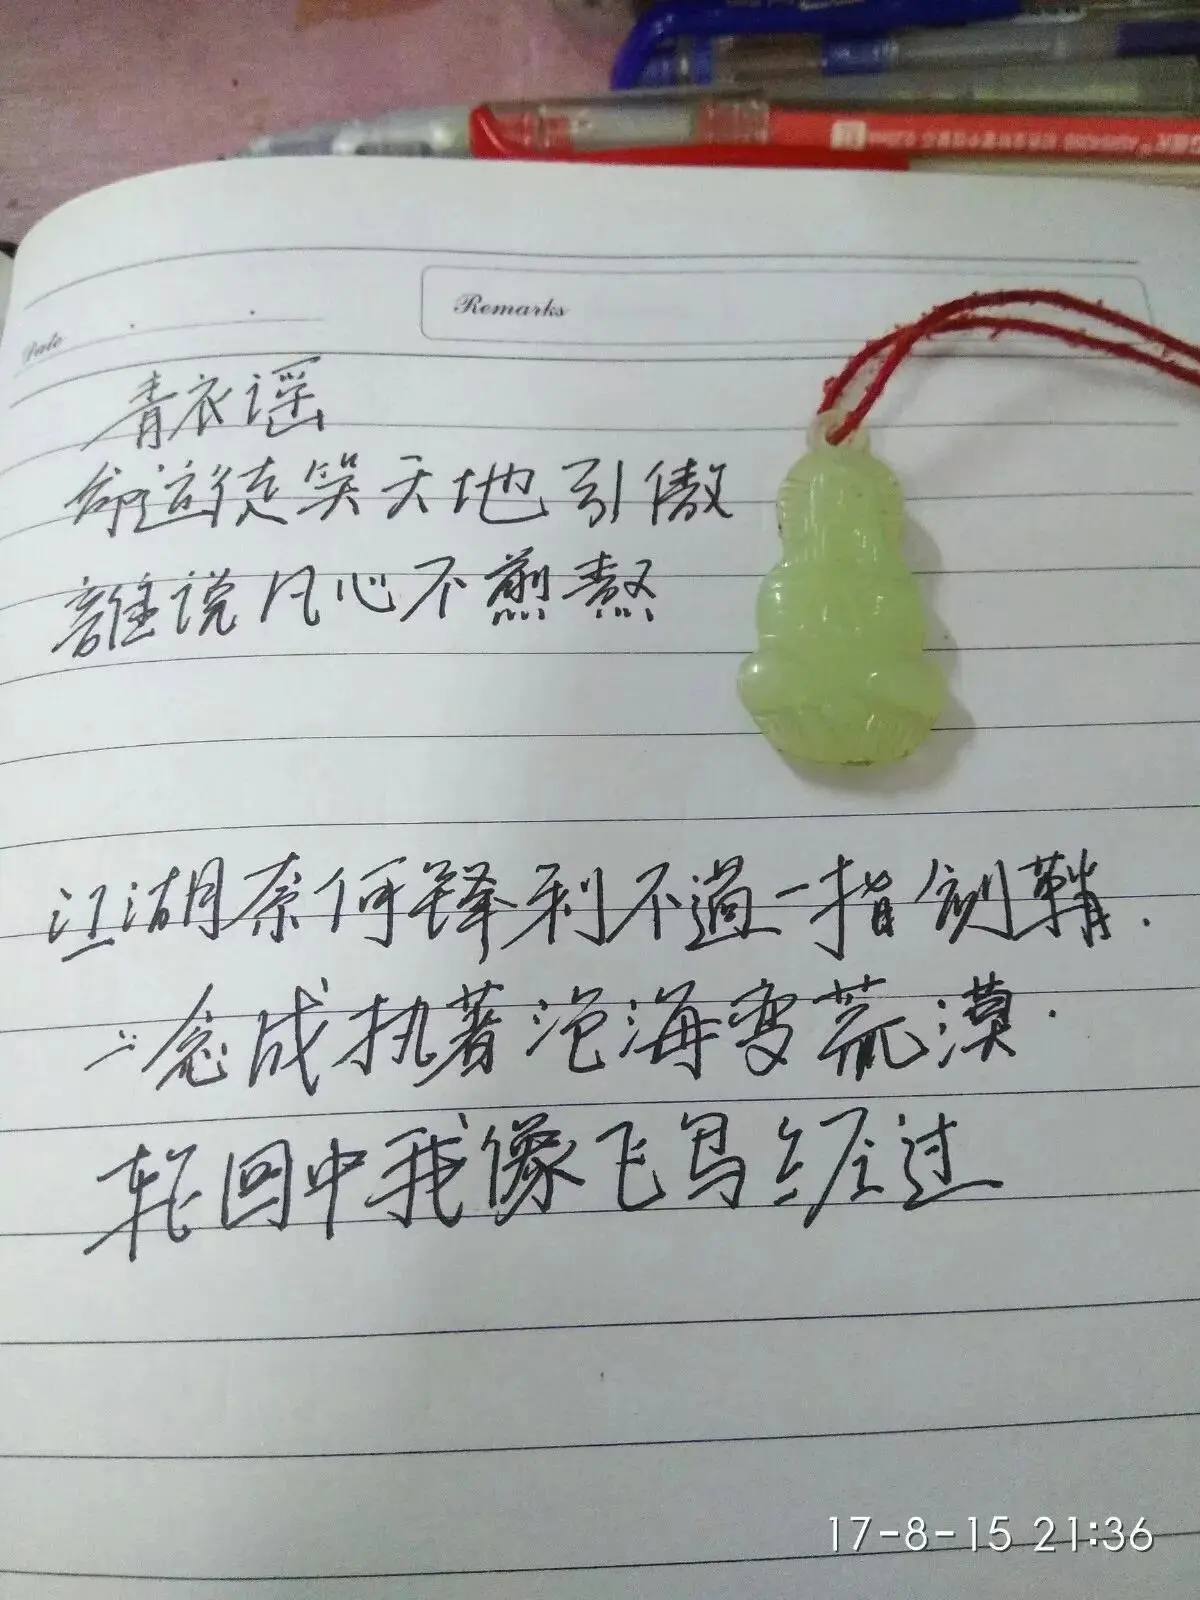 Remarks
Date
青衣谣
徒笑天地引傲
誰说凡心不煎熬
江湖奈何锋利不過一指刻鞘.
念成执著沧海变荒漠.
轮回中我像飞鸟经过
17-8-15 21:36